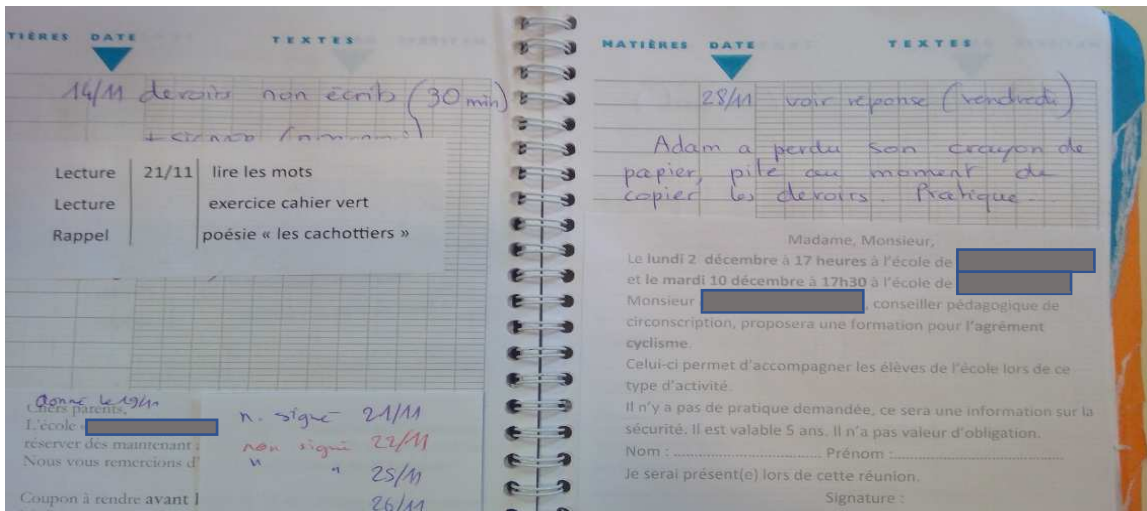 MATIÈRES DATE TEXTES
14/11 devoirs non écrits (30 min)
Lecture 21/11 lire les mots
Lecture exercice cahier vert
Rappel poésie « les cachottiers »
donné le 19/11
Chers parents,
L'école
réserver dès maintenant
Nous vous remercions d'
Coupon à rendre avant l
n. signé 21/11
non signé 22/11
" " 25/11
26/11
MATIÈRES DATE TEXTES
28/11 voir réponse (vendredi)
Adam a perdu son crayon de
papier, pile au moment de
copier les devoirs. Pratique...
Madame, Monsieur,
Le lundi 2 décembre à 17 heures à l'école de
et le mardi 10 décembre à 17h30 à l'école de
Monsieur , conseiller pédagogique de
circonscription, proposera une formation pour l'agrément
cyclisme.
Celui-ci permet d'accompagner les élèves de l'école lors de ce
type d'activité.
Il n'y a pas de pratique demandée, ce sera une information sur la
sécurité. Il est valable 5 ans. Il n'a pas valeur d'obligation.
Nom : ........................... Prénom :...................................
Je serai présent(e) lors de cette réunion.
Signature :